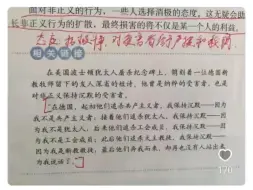 面对非正义行为,一些人选择消极的态度,这无疑会助
长非正义行为的扩散,最终损害的将不仅是某一个人的利益。
相关链接
在美国波士顿犹太人屠杀纪念碑上,铭刻着一位德国新
教牧师留下的发人深省的短诗,他曾是纳粹的受害者,也是
对非正义保持沉默的受害者。
"在德国,起初他们追杀共产主义者,我保持沉默——因
为我不是共产主义者;接着他们追杀犹太人,我保持沉默——因
为我不是犹太人;后来他们追杀工会成员,我保持沉默——因
为我不是工会成员;此后他们追杀天主教徒,我保持沉默——
因为我是新教教徒;最后他们奔我而来,却再也没有人站出来
为我说话了。"